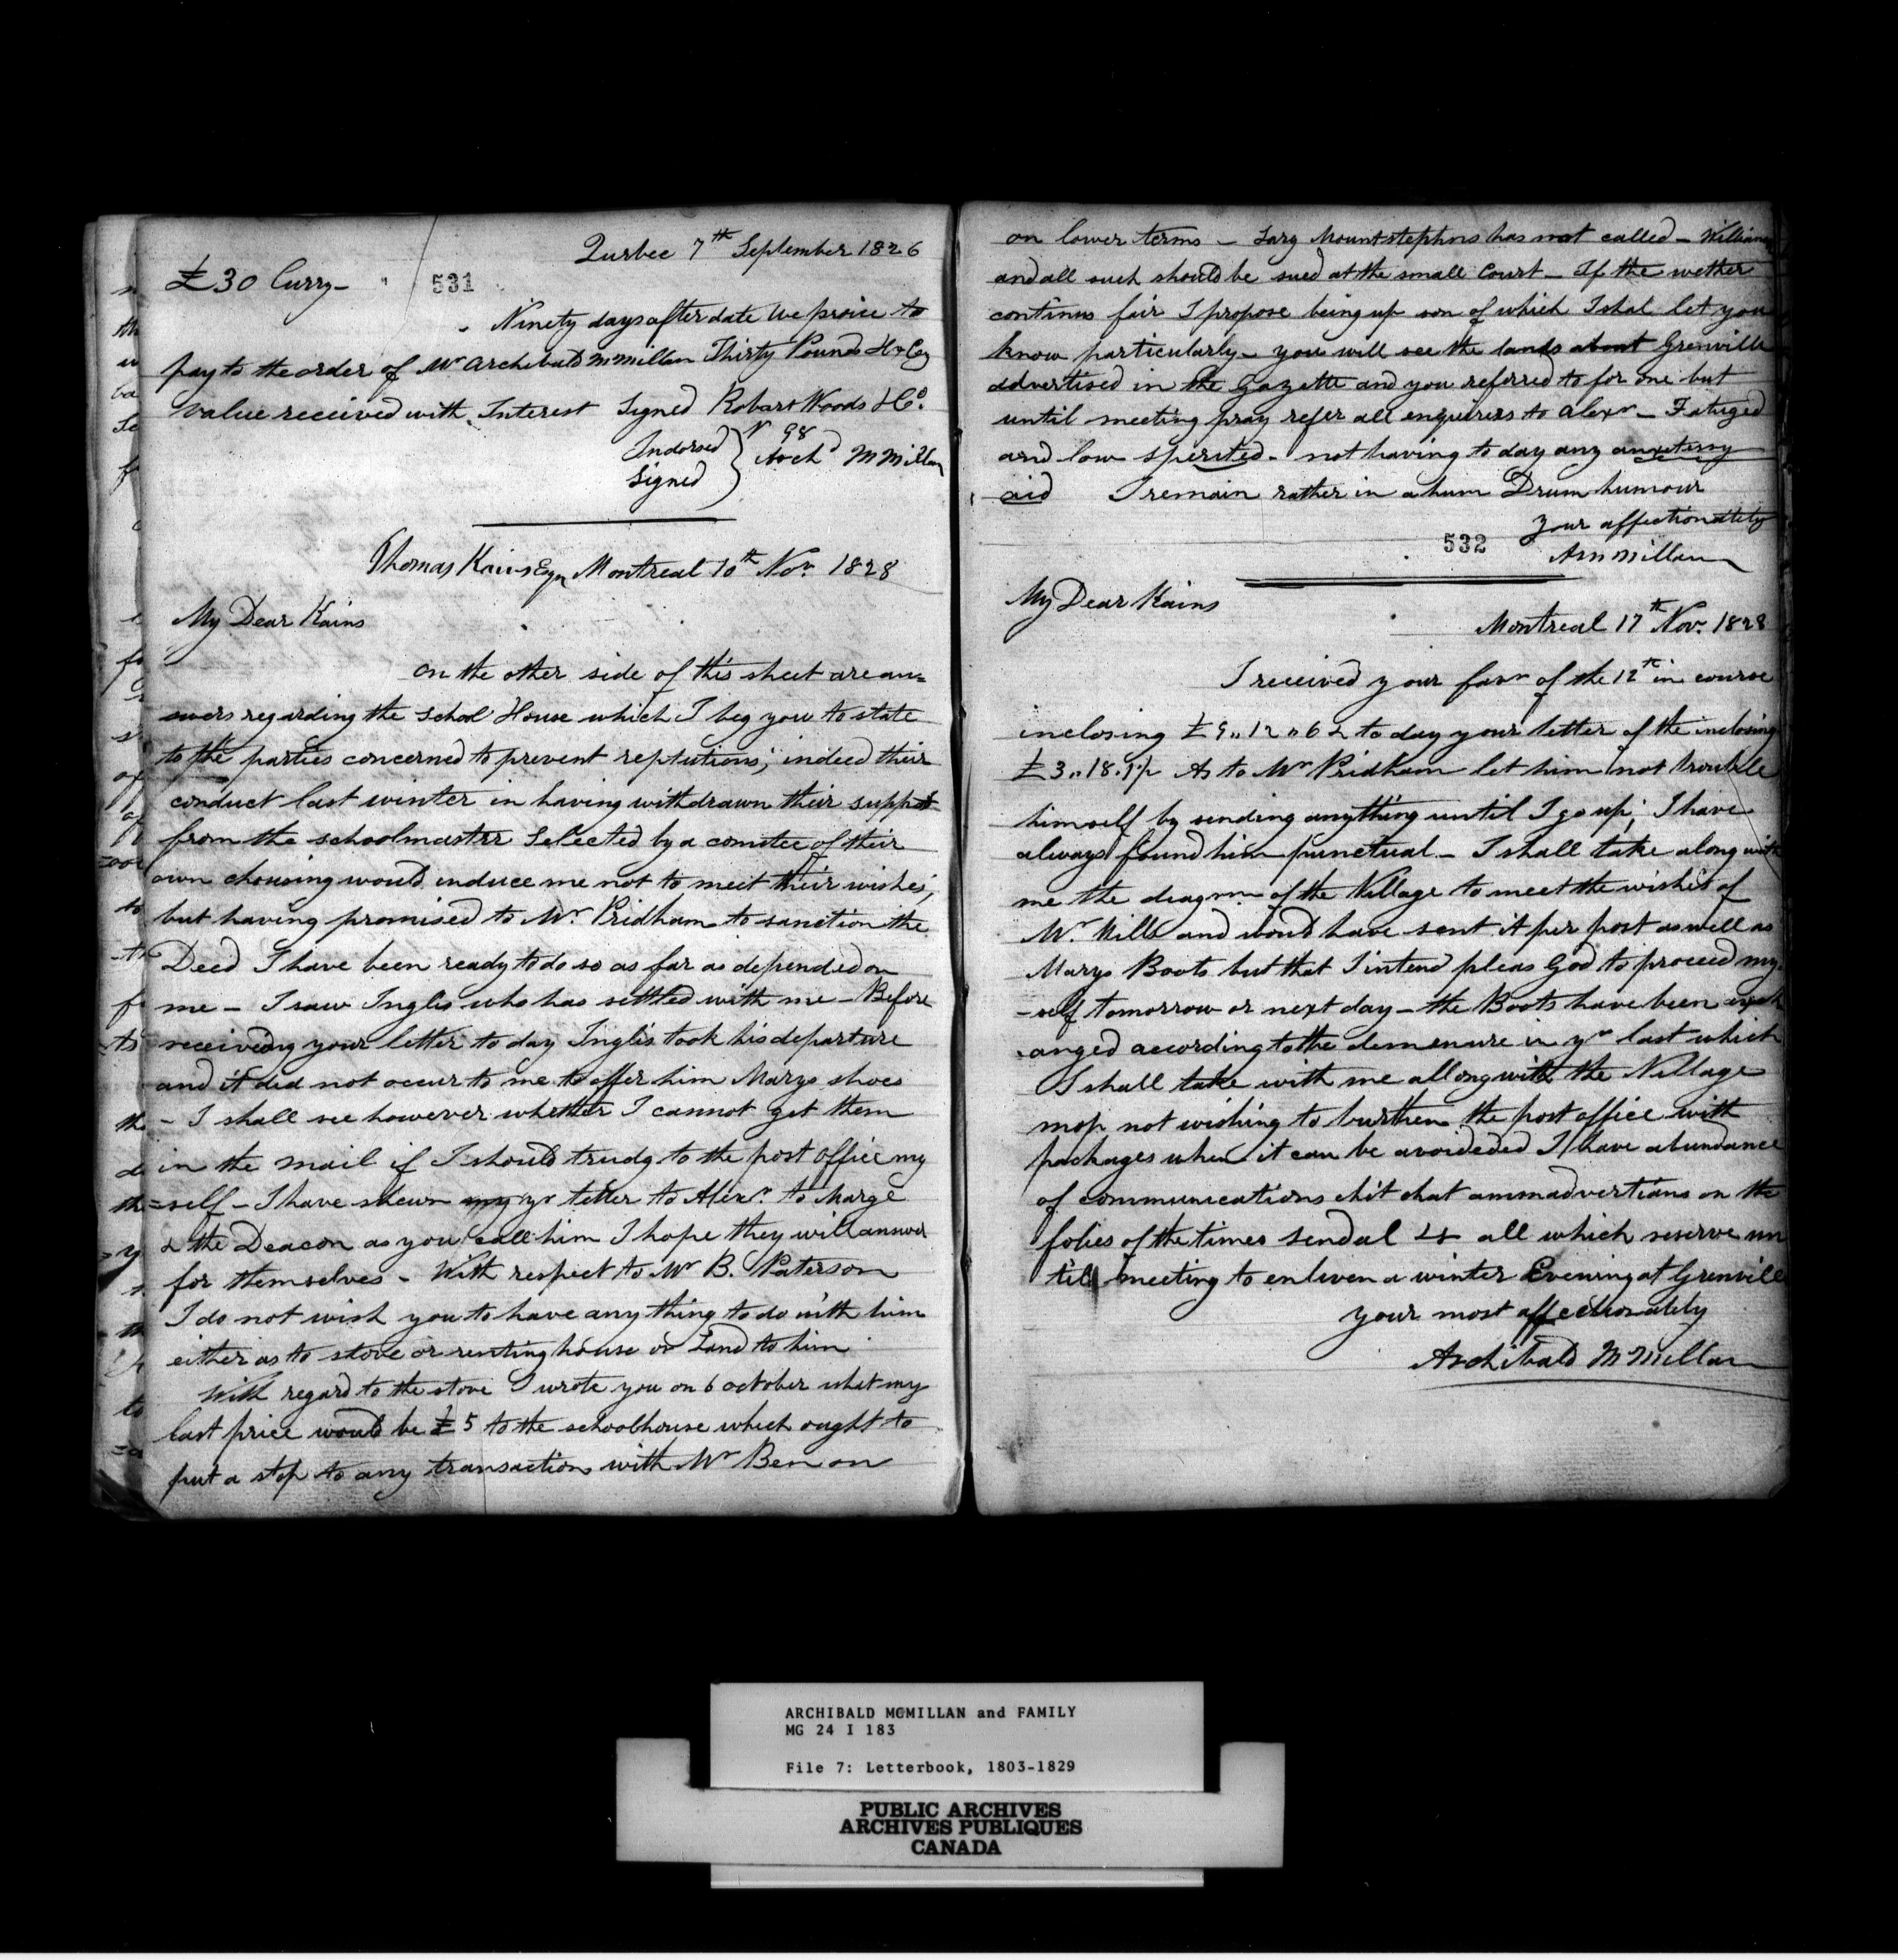 Qurbec 7th September 1826
£30 Curry-
531
Ninety days after date We proise to
pay to the order of Mr Archibald McMillan Thirty Pounds H x Cy
value received with Interest Signed Robart Woods & Co.
Indorsed
Signed
Archd McMillan
Thomas Kains Esqr Montreal 10th Nov. 1828
My Dear Kains
on the other side of this sheet are an=
swers regarding the Schol House which I beg you to state
to the parties concerned to prevent reptutions; indeed their
conduct last winter in having withdrawn their support
from the schoolmastrr Selected by a comitee of their
own chousing would induce me not to meit their wishes;
but having promised to Mr. Pridham to sanction the
Deed I have been ready to do so as far as depended on
me - I saw Inglis who has settled with me - Before
receiveing your letter to day Inglis took his departure
and it did not occur to me to offer him Marys shoes
- I shall see however whether I cannot get them
in the mail if I should trudg to the post office my
=self - I have shewn my yr letter to Alexr. to Marge
& the Deacon as you call him I hope they will answer
for themselves - With respect to Mr B. Paterson
I do not wish you to have any thing to do with him
either as to stove or renting house or Land to him
With regard to the stove I wrote you on 6 october what my
last price would be £5 to the schoolhouse which ought to
put a stop to any transactions with Mr Ben on
on lower terms - Larg Mountstephns has not called - Williams
and all such should be sued at the small Court - If the wether
continus fair I propose being up son of which I shal let you
know particularly - you will see the lands about Grenville
advertised in the Gazette and you referred to for one but
until meeting pray refer all enquirers to Alexr - Fatuged
and low sperited - not having to day any
aid I remain rather in a hum Drum humour
your affectionately
532
AMcMillan
My Dear Kains
Montreal 17th Nov. 1828
I received your favr of the 12th in course
inclosing £9,,12,,6 & to day your letter of the inclosing
£3,,18. As to Mr Pridham let him not trouble
himself by sending anything until I go up; I have
always found him punctual - I shall take along with
me the diagrm of the Village to meet the wishes of
Mr. Wills and would have sent it per post as well as
Marys Boots but that I intend pleas God to proceed my
-self tomorrow or next day - the Boots have been exch
anged according to the demenure in yr last which
I shall take with me allong with the Village
map not wishing to burthen the post office with
packages when it can be avoideded I have abundance
of communications chit chat ammadvertians on the
folies of the times Sendal &c all which reserve un
till meeting to enliven a winter Evening at Grenvill
your most affectionately
Archibald McMillan
ARCHIBALD MCMILLAN and FAMILY
MG 24 I 183
File 7: Letterbook, 1803-1829
PUBLIC ARCHIVES
ARCHIVES PUBLIQUES
CANADA